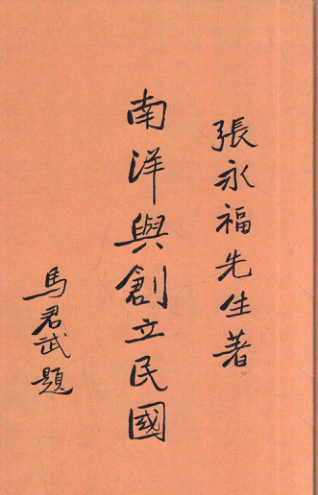 張永福先生著
南洋與創立民國
馬君武題